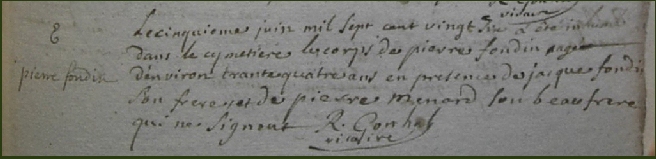 vicaire
E
Le cinquiome juin mil sept cent vingt six a été inhumé
dans le cymetiere le corps de pierre fondin aagé
pierre fondin
denviron trante quatre ans en presence de jacque fondin
son frere et de pierre menard son beaufrere
qui ne signent R. Gonhal
vicaire